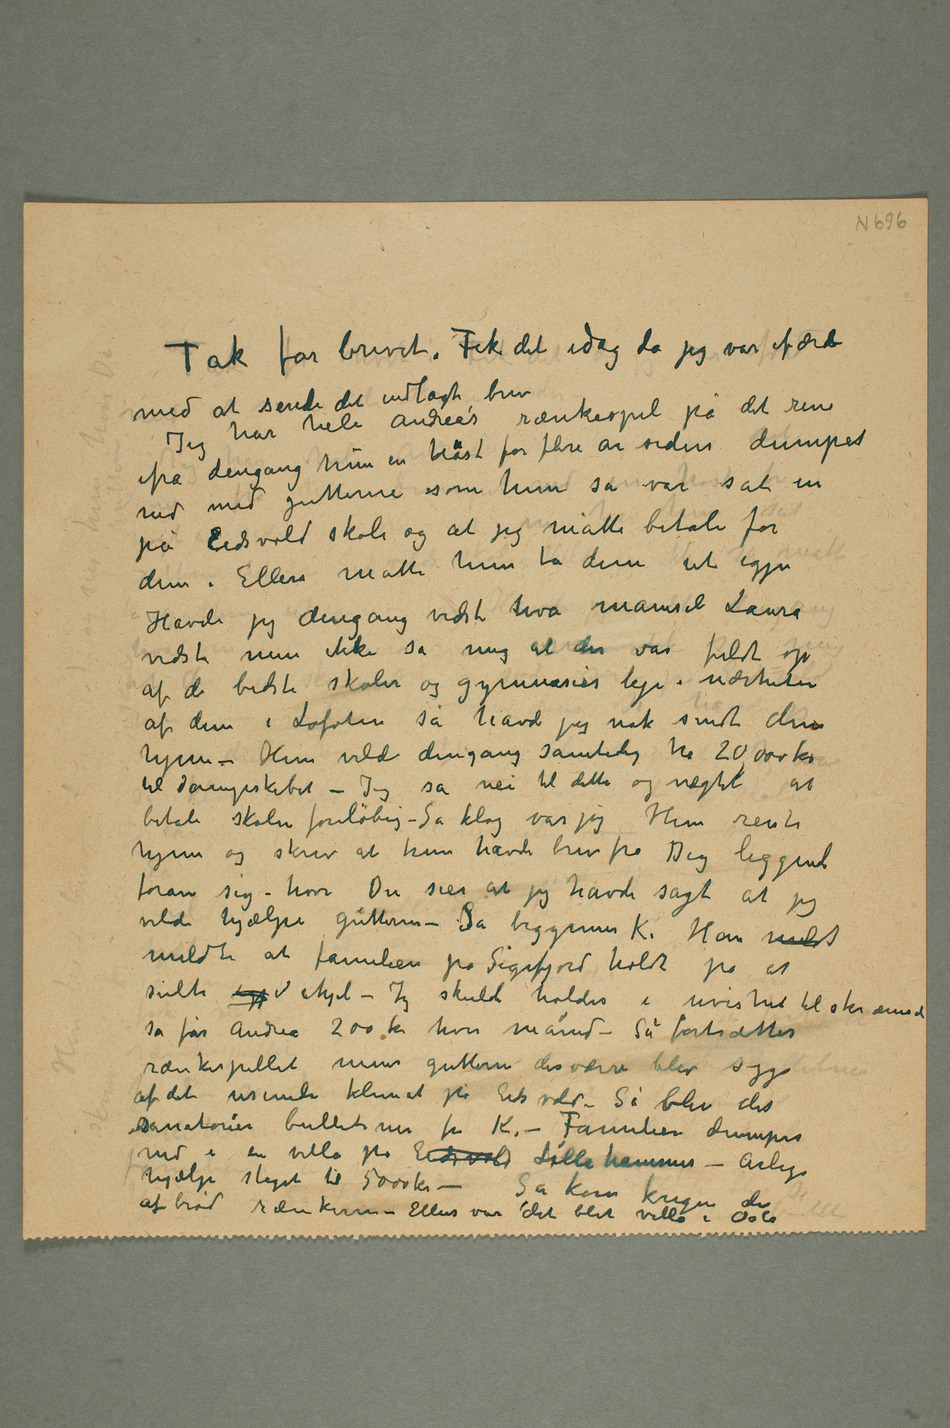 N 696
Tak for brevet. Fik det idag da jeg var ifærd
med at sende det indlagte brev
Jeg har hele Andrea's rænkespil på det rene
ifra dengang hun en høst for flere år siden dumpet
ned med gutterne som hun sa var sat in
på Eidsvold skole og at jeg måtte betale for
dem. Ellers måtte hun ta dem ut igjen
Havde jeg dengang vidst hva mamsel Laura
vidste men ikke sa mig at der var fuldt op
af de bedste skoler og gymnasier lige i nærheten
af dem i Lofoten så havde jeg nok sendt dem
hjem – Hun vilde dengang samtidig ha 20,000 kr
til dampskibet – Jeg sa nei til dette og nægtet at
betale skolen foreløbig – Så klog var jeg Hun reiste
hjem og skrev at hun havde brev fra Dig liggende
foran sig – hvor Du sier at jeg havde sagt at jeg
vilde hjælpe gutterne – Så begynner K. Han meldt
meldte at familien på Sigefjord holdt på at
sulte ihjel – Jeg skulde holdes i uvished til skræmsel
så får Andrea 200 kr hver måned – Så fortsættes
rænkespillet mens gutterne desværre blev syge
af det usunde klimat på Eidsvold – Så blev det
sanatorier bulletiner fra K. – Familien dumpes
ned i en villa på Eidsvold Lillehammer – Årlige
hjælpe steget til 5000 kr – Så kom krigen der
afbrød rænkerne – Ellers var det blit villa i Oslo